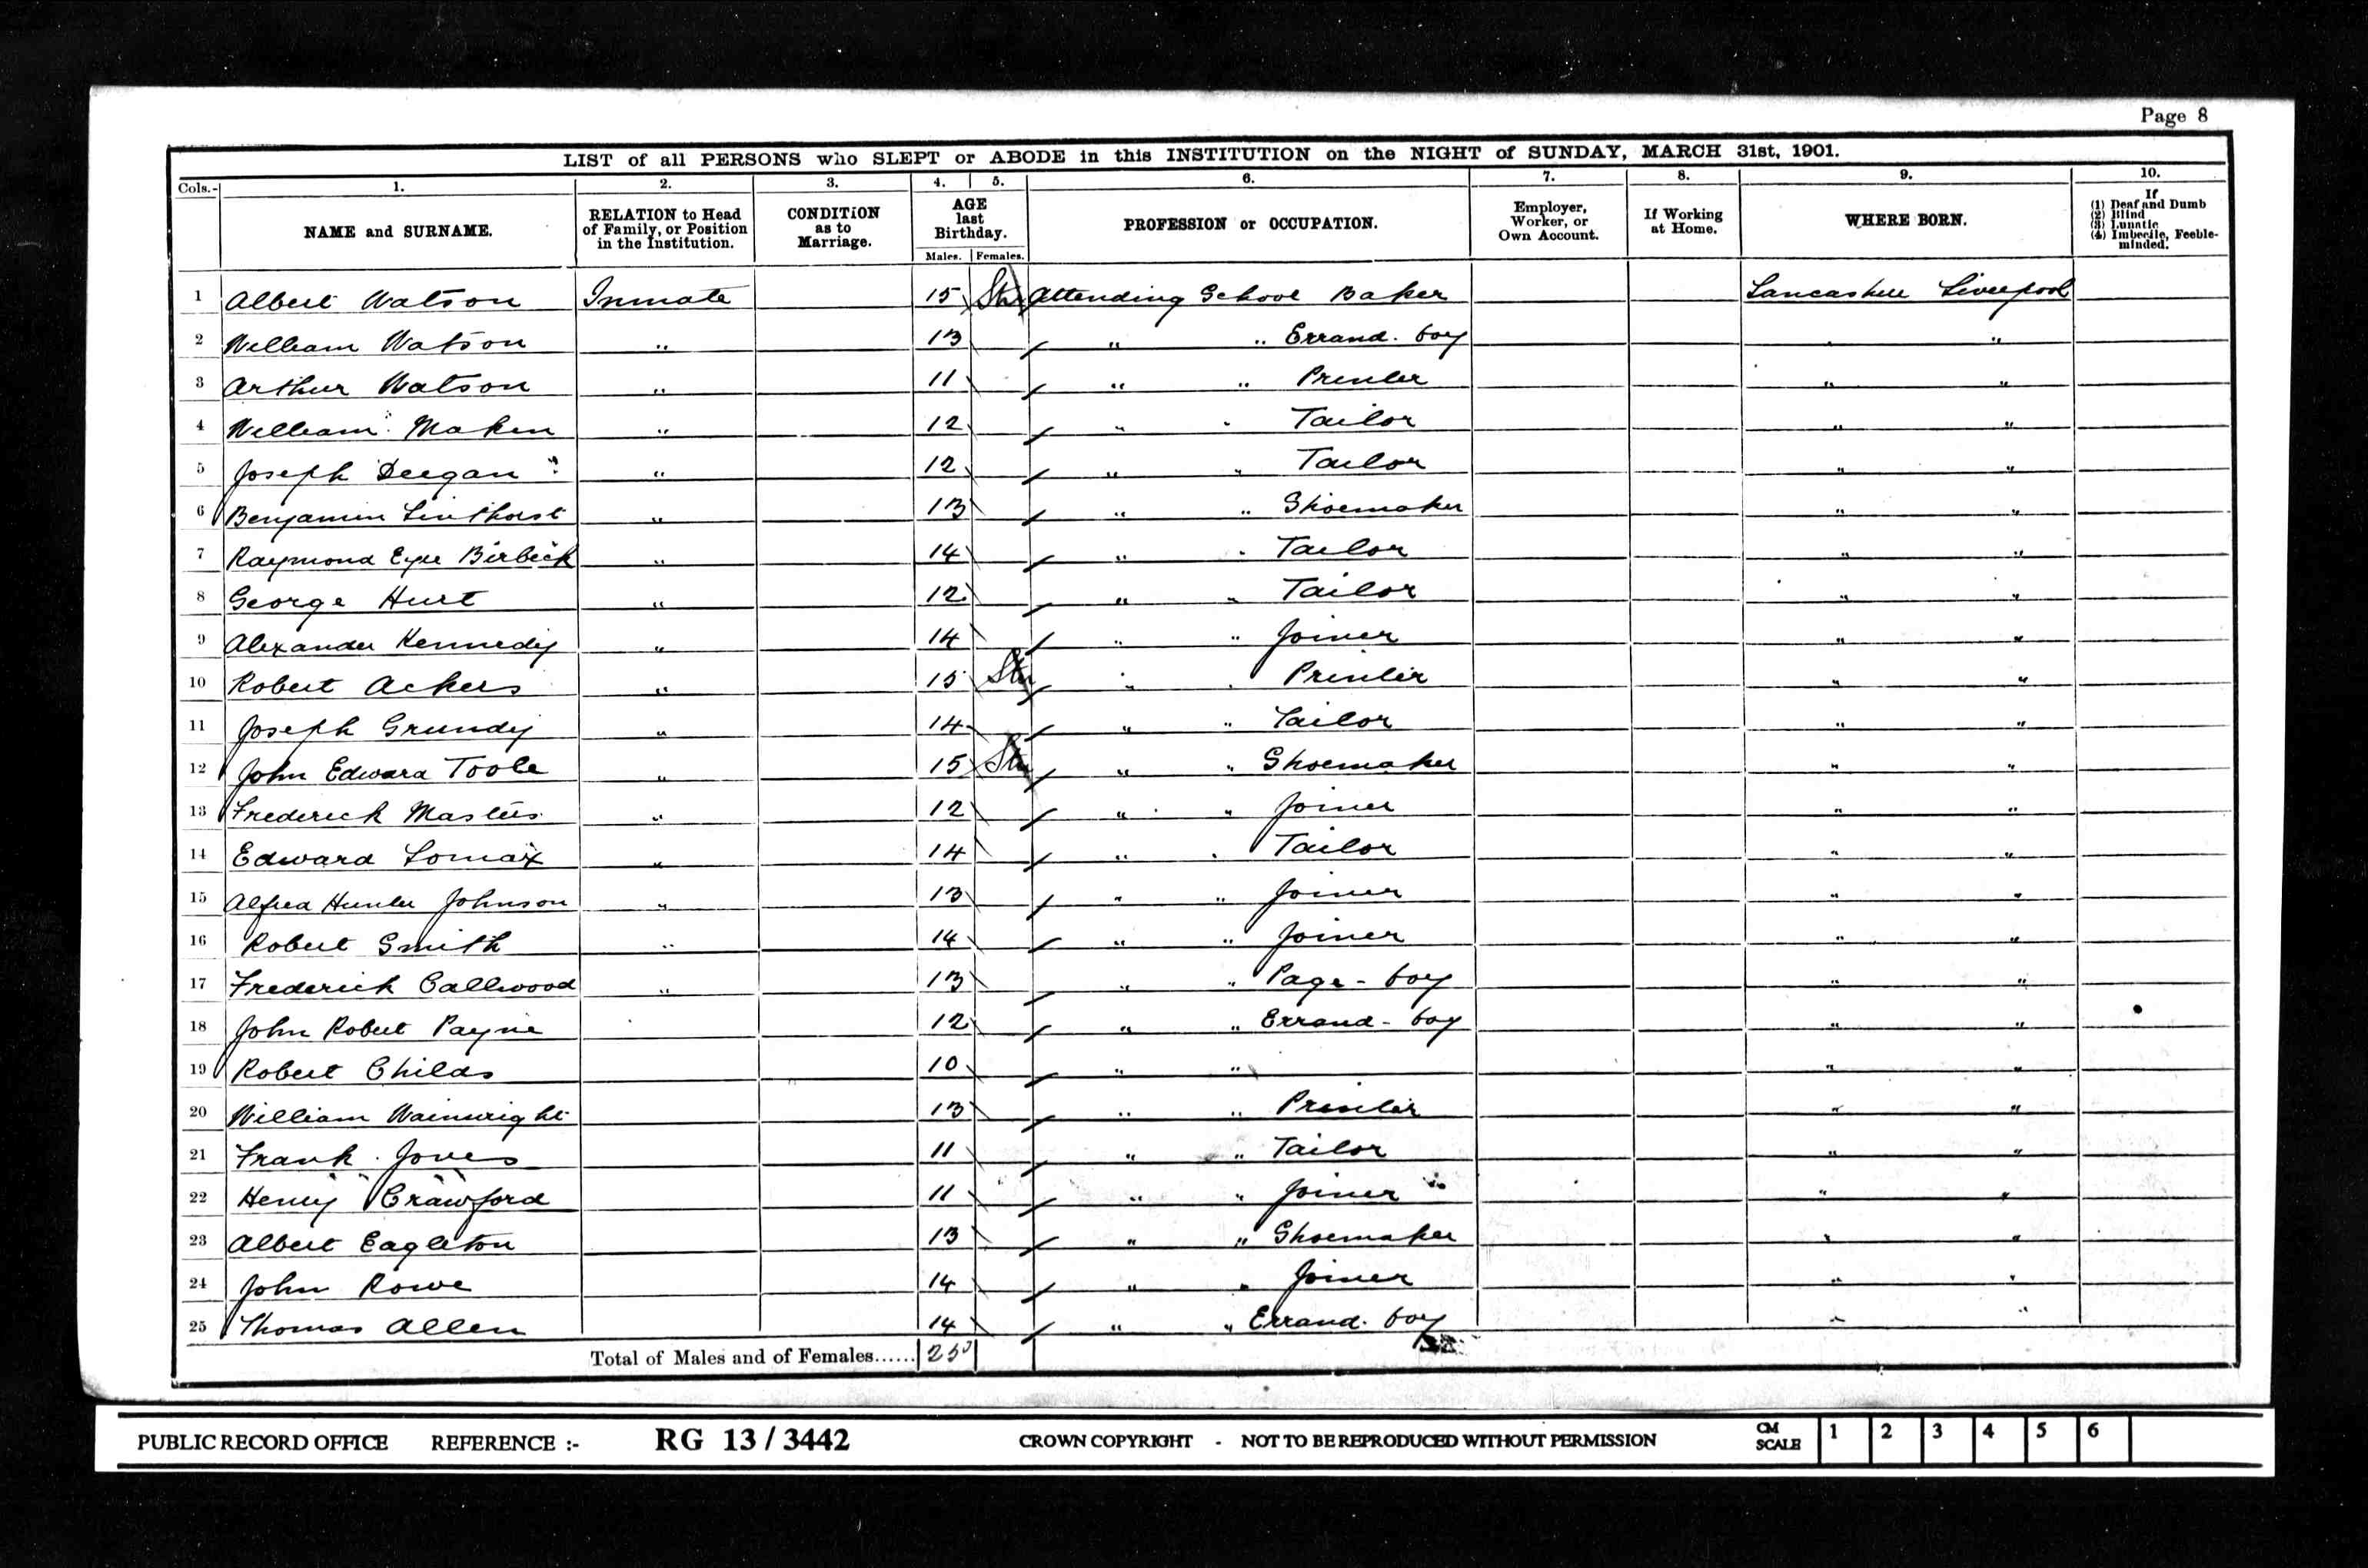 Page 8
LIST of all PERSONS who SLEPT or ABODE in this INSTITUTION on the NIGHT of SUNDAY, MARCH 31st, 1901.
Cols.- 1. 2. 3. 4. 5. 6. 7. 8. 9. 10.
NAME and SURNAME. RELATION to Head of Family, or Position in the Institution. CONDITION as to Marriage. AGE last Birthday. Males. Females. PROFESSION or OCCUPATION. Employer, Worker, or Own Account. If Working at Home. WHERE BORN. If (1) Deaf and Dumb (2) Blind (3) Lunatic (4) Imbecile, Feeble-minded.
1 Albert Watson Inmate 15 Attending School Baker Lancashire Liverpool
2 William Watson " 13 " " Errand-boy " "
3 Arthur Watson " 11 " " Printer " "
4 William Makin " 12 " " Tailor " "
5 Joseph Deegan " 12 " " Tailor " "
6 Benjamin Linthorst " 13 " " Shoemaker " "
7 Raymond Eyre Birbeck " 14 " " Tailor " "
8 George Hurt " 12 " " Tailor " "
9 Alexander Kennedy " 14 " " Joiner " "
10 Robert Ackers " 15 " " Printer " "
11 Joseph Grundy " 14 " " Tailor " "
12 John Edward Toole " 15 " " Shoemaker " "
13 Frederick Masters " 12 " " Joiner " "
14 Edward Lomax " 14 " " Tailor " "
15 Alfred Hunter Johnson " 13 " " Joiner " "
16 Robert Smith " 14 " " Joiner " "
17 Frederick Callwood " 13 " " Page-boy " "
18 John Robert Payne 12 " " Errand-boy " "
19 Robert Childs 10 " " " "
20 William Wainwright 13 " " Printer " "
21 Frank Jones 11 " " Tailor " "
22 Henry Crawford 11 " " Joiner " "
23 Albert Eagleton 13 " " Shoemaker " "
24 John Rowe 14 " " Joiner " "
25 Thomas Allen 14 " " Errand-boy " "
Total of Males and of Females...... 25
PUBLIC RECORD OFFICE REFERENCE :- RG 13 / 3442 CROWN COPYRIGHT - NOT TO BE REPRODUCED WITHOUT PERMISSION CM SCALE 1 2 3 4 5 6